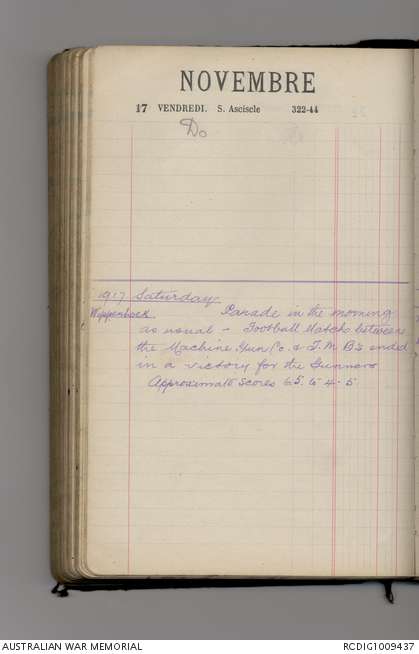 NOVEMBRE
17 VENDREDI. S. Asciscle 322-44
Do
1917 Saturday
Wippenhoek Parade in the morning
as usual - Football Match between
the Machine Gun Co. & T.M.B's ended
in a victory for the Gunners
Approximate Scores 65. to 4-5
AUSTRALIAN WAR MEMORIAL RCDIG1009437